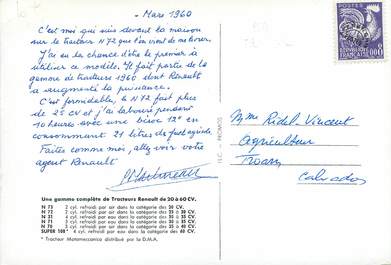 - Mars 1960
C'est moi qui suis devant la maison
sur le tracteur N 72 que l'on vient de me livrer.
J'ai eu la chance d'être le premier à
utiliser ce modèle. Il fait partie de la
gamme de tracteurs 1960 dont Renault
a augmenté la puissance.
C'est formidable, le N 72 fait plus
de 25 CV et j'ai labouré pendant
10 heures avec une bisoc 12" en
consommant 21 litres de fuel agricole.
Faites comme moi, allez voir votre
agent Renault
Une gamme complète de Tracteurs Renault de 20 à 60 CV.
N 73 2 cyl. refroidi par air dans la catégorie des 20 CV.
N 72 2 cyl. refroidi par air dans la catégorie des
N 31 4 cyl. refroidi par eau dans la catégorie des
N 71 3 cyl. refroidi par air dans la catégorie des
N 70 3 cyl. refroidi par air dans la catégorie des
SUPER 108* 4 cyl. refroidi par eau dans la catégorie des 60 CV.
* Tracteur Motomeccanica distribué par la D.M.A.
H.C. - PROMOS
POSTES
RÉPUBLIQUE
FRANÇAISE
Mme Ridel Vincent
Agriculteur
Troarn
Calvados